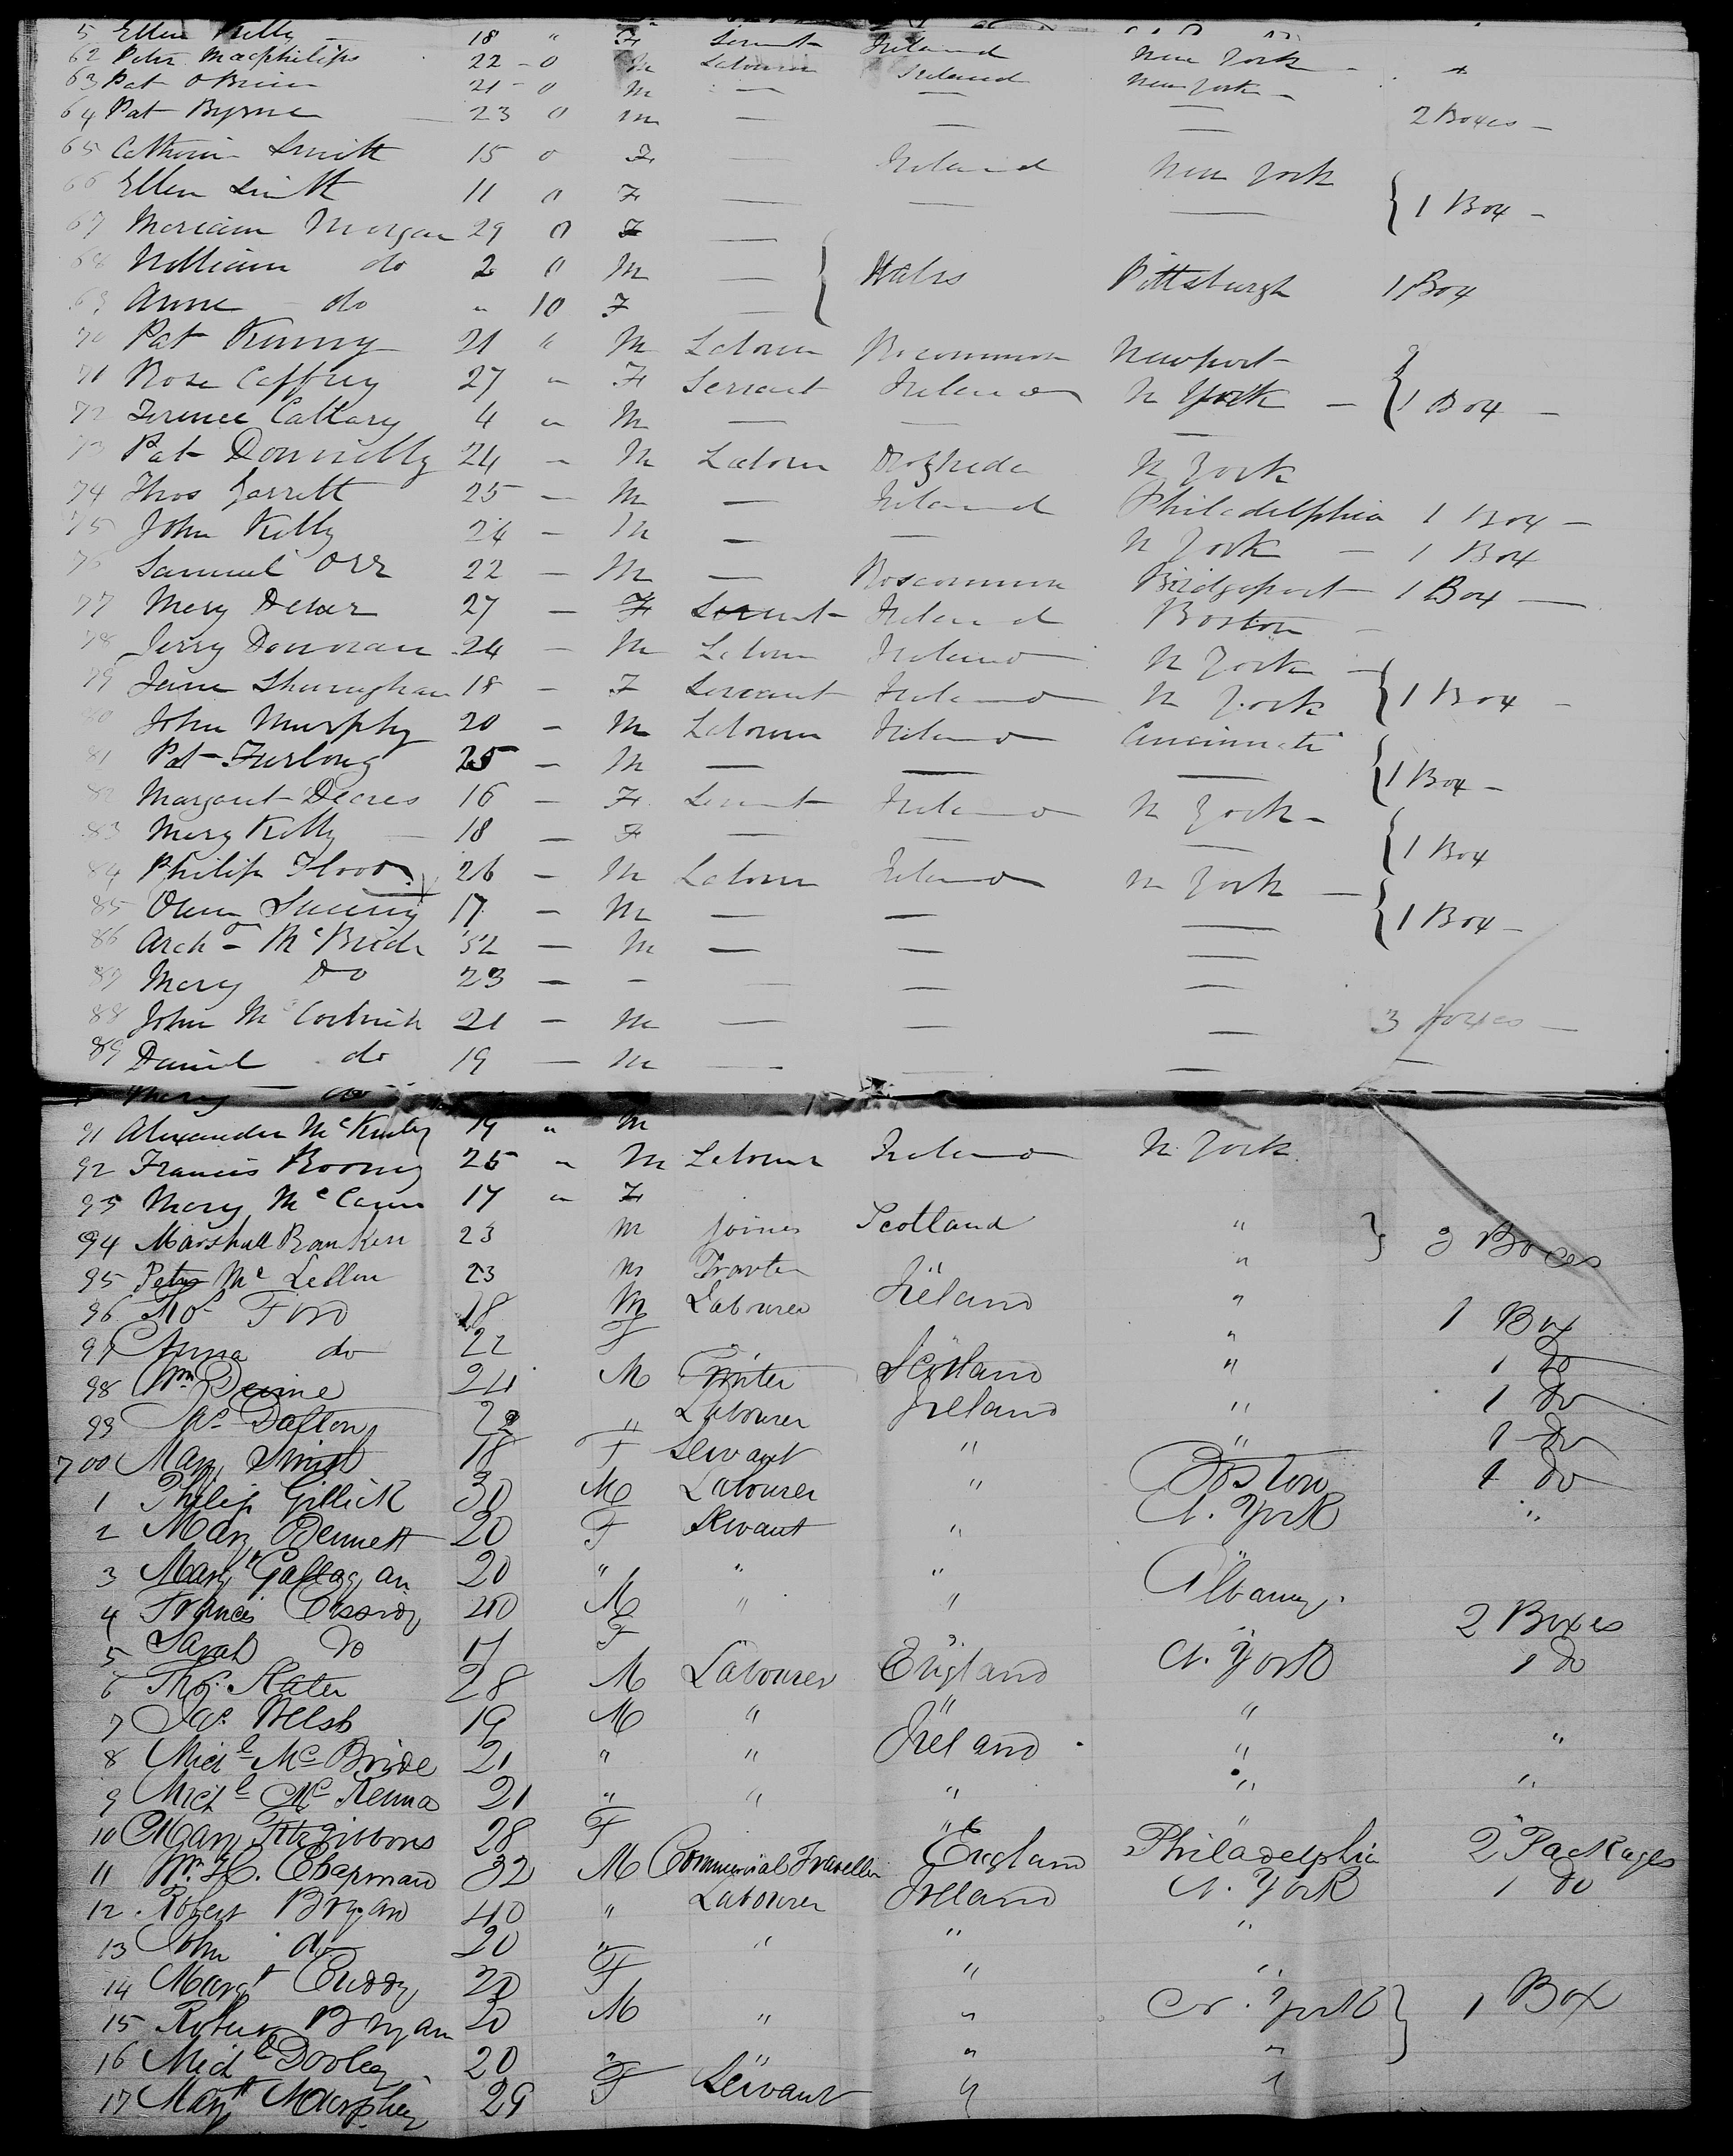 5 Ellen Kelly 18 " F Servant Ireland
62 Peter Macphilips 22 - 0 M Labourer Ireland New York -
63 Pat O Brien 21 - 0 M — — New York -
64 Pat Byrne — 23 0 M — — — 2 Boxes -
65 Catherine Smith 15 0 F — Ireland New York
66 Ellen Smith 11 0 F — — — { 1 Box -
67 Meriam Morgan 29 0 F —
68 William do 2 0 M — { Wales Pittsburgh 1 Box
69 Anne do " 10 F —
70 Pat Kenny 21 " M Labourer Roscommon Newport
71 Rose Caffrey 27 " F Servant Ireland N York - { 1 Box -
72 Terence Caffary 4 " M — — —
73 Pat Donnelly 24 - M Labour Drogheda N York
74 Thos Garrett 25 - M — Ireland Philadelphia 1 Box -
75 John Kelly 24 - M — — N York - 1 Box
76 Samuel Orr 22 - M — Roscommon Bridgeport 1 Box —
77 Mary 27 - F Servant Ireland Boston -
78 Jerry Donovan 24 - M Labour Ireland N York -
79 Jane 18 - F Servant Ireland N York { 1 Box -
80 John Murphy 20 - M Labourer Ireland Cincinnati
81 Pat Furlong 25 - M — — — { 1 Box -
82 Margaret Deares 16 - F Servant Ireland N York -
83 Mary Kelly — 18 - F — — — { 1 Box
84 Philip Flood 26 - M Labour Ireland N York —
85 Owen 17 - M — — — { 1 Box -
86 Archd McBride 32 - M — — —
87 Mary Do 23 - - — — —
88 John Mc 21 - M — — — 3 Boxes —
89 Daniel do 19 — M — — — —
Mary do
91 Alexander McKinley 19 " M
92 Francis Rooney 25 " M Labourer Ireland N. York
93 Mary McCann 17 " F
94 Marshall Ranken 23 M Joiner Scotland " } 3 Boxes
95 Peter McLellon 23 M "
96 Thos Ford 18 M Labourer Ireland " 1 Box
97 Anna do 22 F " " 1 Do
98 Wm Devine 24 M Printer Scotland " 1 Do
99 Jas Dalton 22 " Labourer Ireland " 1 Do
700 Mary Smith 18 F Servant " "
1 Philip Gillick 30 M Labourer " Boston 1 Do
2 Mary Bennett 20 F Servant " N. York "
3 Margt Gallagan 20 " " "
4 Francis Cassidy 40 M " " Albany.
5 Sarah Do 17 F " " 2 Boxes
6 Thos. Slater 28 M Labourer England N. York 1 Do
7 Jas. Welsh 19 M " " "
8 Michl McBride 21 " " Ireland " "
9 Michl McKenna 21 " " " " "
10 Mary Fitzgibbons 28 F " " "
11 Wm H. Chapman 32 M Commercial Traveller England Philadelphia 2 Packages
12 Robert Bryan 40 " Labourer Ireland N. York 1 do
13 John do 20 " " " "
14 Margt Cuddy 20 F " "
15 Robert Bryan 20 M " " N. York } 1 Box
16 Michl Dooley 20 " " " "
17 Margt Murphy 29 F Servant " "